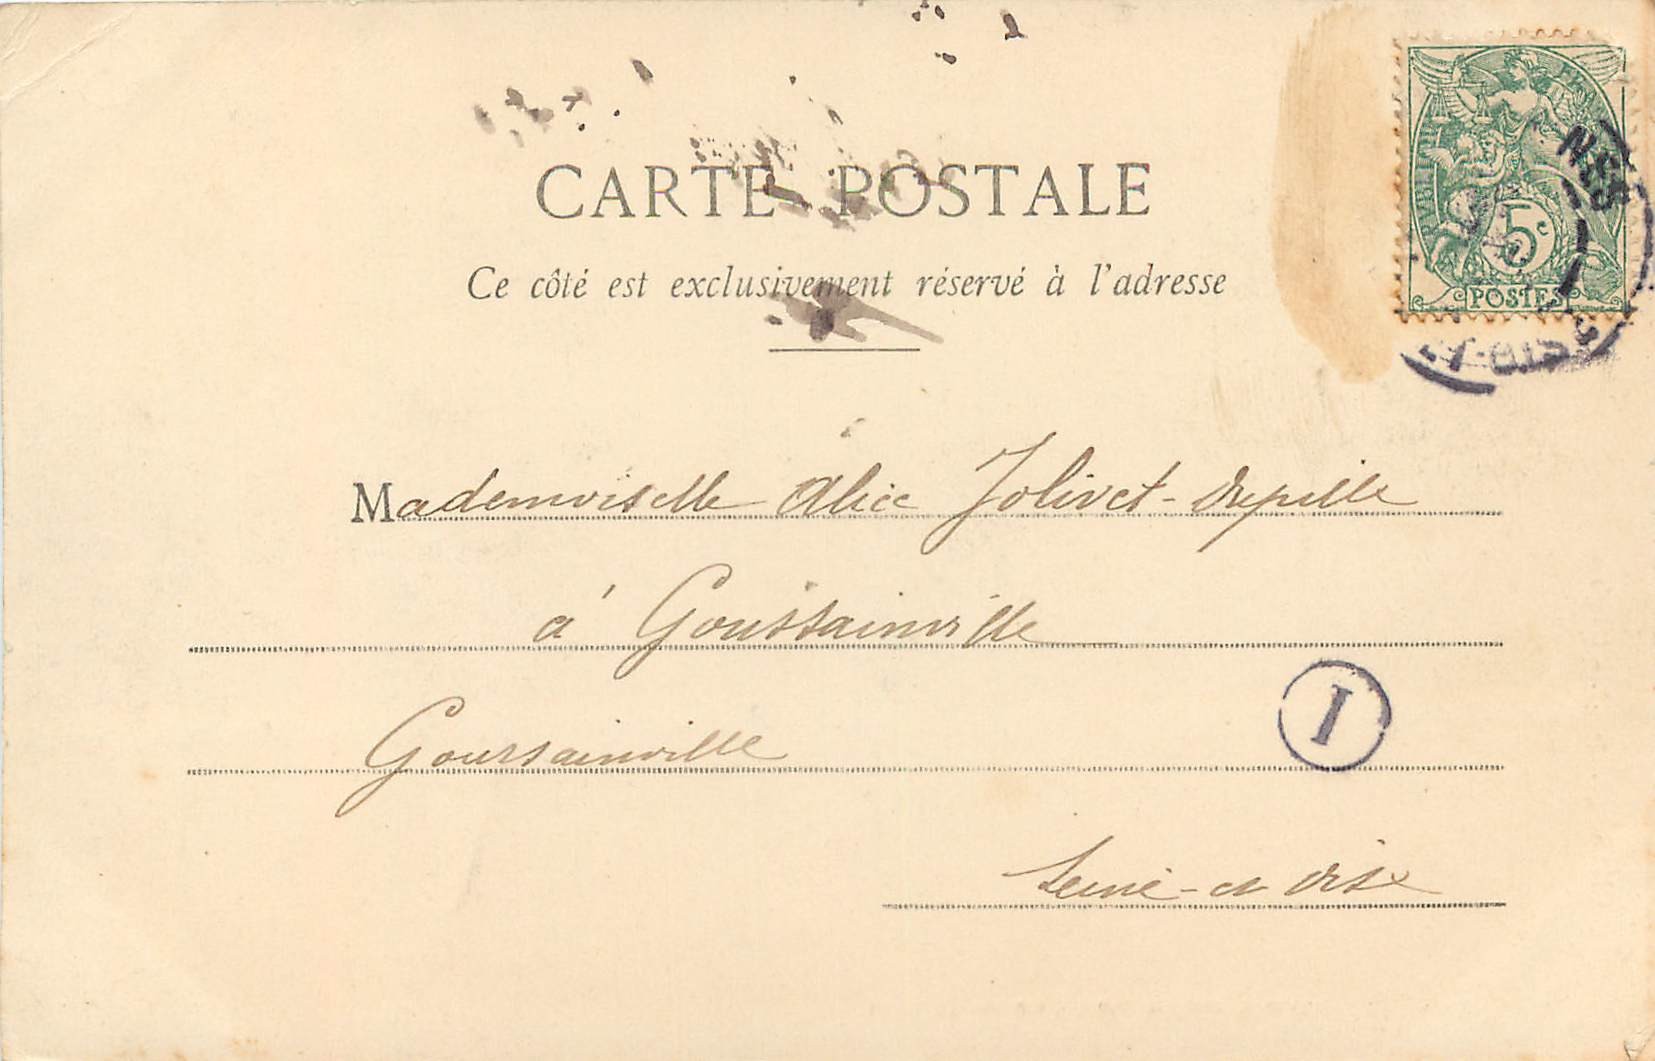 CARTE POSTALE
Ce côté est exclusivement réservé à l'adresse
5c
POSTES
NES
Mademoiselle Alice Jolivet-
à Goussainville
Goussainville
I
Seine-et Oise